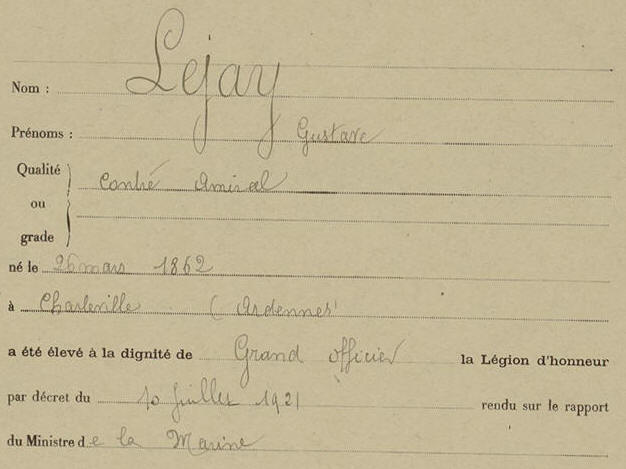 Nom : Lejay
Prénoms : Gustave
Qualité
Contre Amiral
ou
grade
né le 26 mars 1862
à Charleville (Ardennes)
a été élevé à la dignité de Grand officier la Légion d'honneur
par décret du 10 Juillet 1921 rendu sur le rapport
du Ministre de la Marine